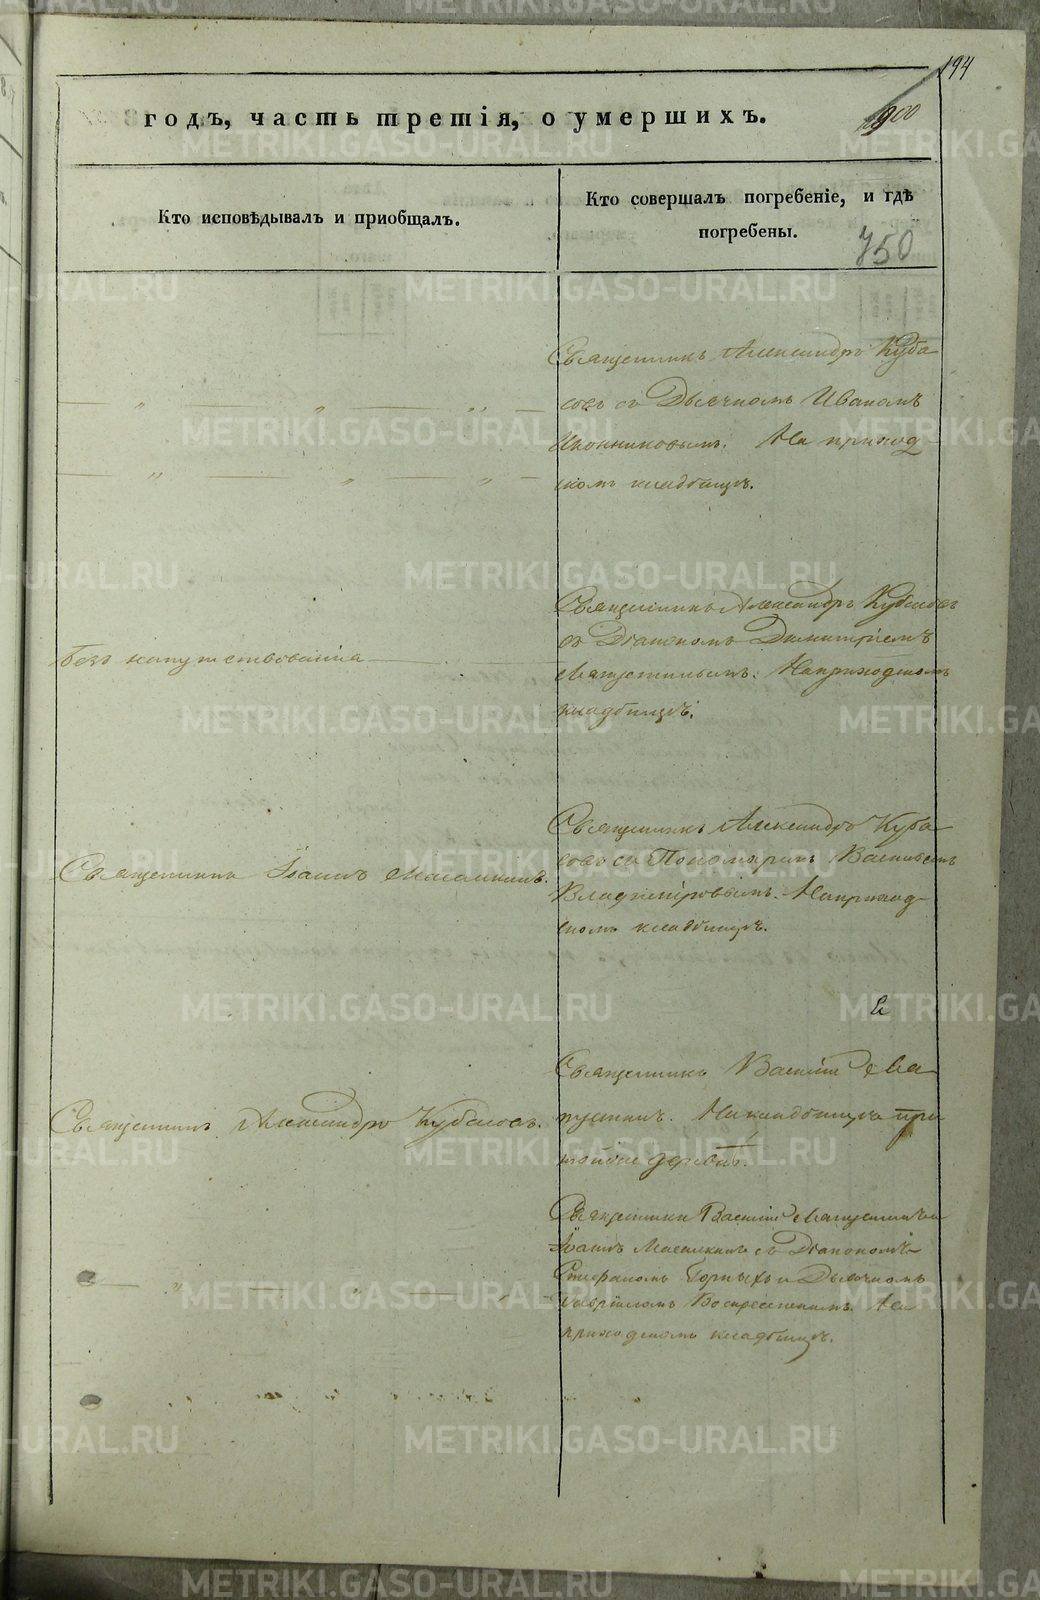 194
900
годъ, часть третія, о умершихъ.
Кто исповѣдывалъ и приобщалъ.
Кто совершалъ погребеніе, и гдѣ
погребены.
750
Священникъ Александръ Куба
совъ съ Дьячкомъ Иваномъ
Иконниковымъ. На приход-
скомъ кладбищѣ.
Безъ напутствованія
Священникъ Александръ Кубасовъ
съ Діакономъ Димитріемъ
На приходскомъ
кладбищѣ.
Священникъ Іоаннъ
Священникъ Александръ Куба
совъ съ Пономаремъ Василіемъ
Владиміровымъ. На приход-
скомъ кладбищѣ.
Священникъ Александръ Кубасовъ.
Священникъ Василій
На кладбищѣ при
деревнѣ.
Священники Василій
Іоаннъ съ Діакономъ
Стефаномъ Горныхъ и Дьячкомъ
Воскресенскимъ. На
приходскомъ кладбищѣ.
METRIKI.GASO-URAL.RU